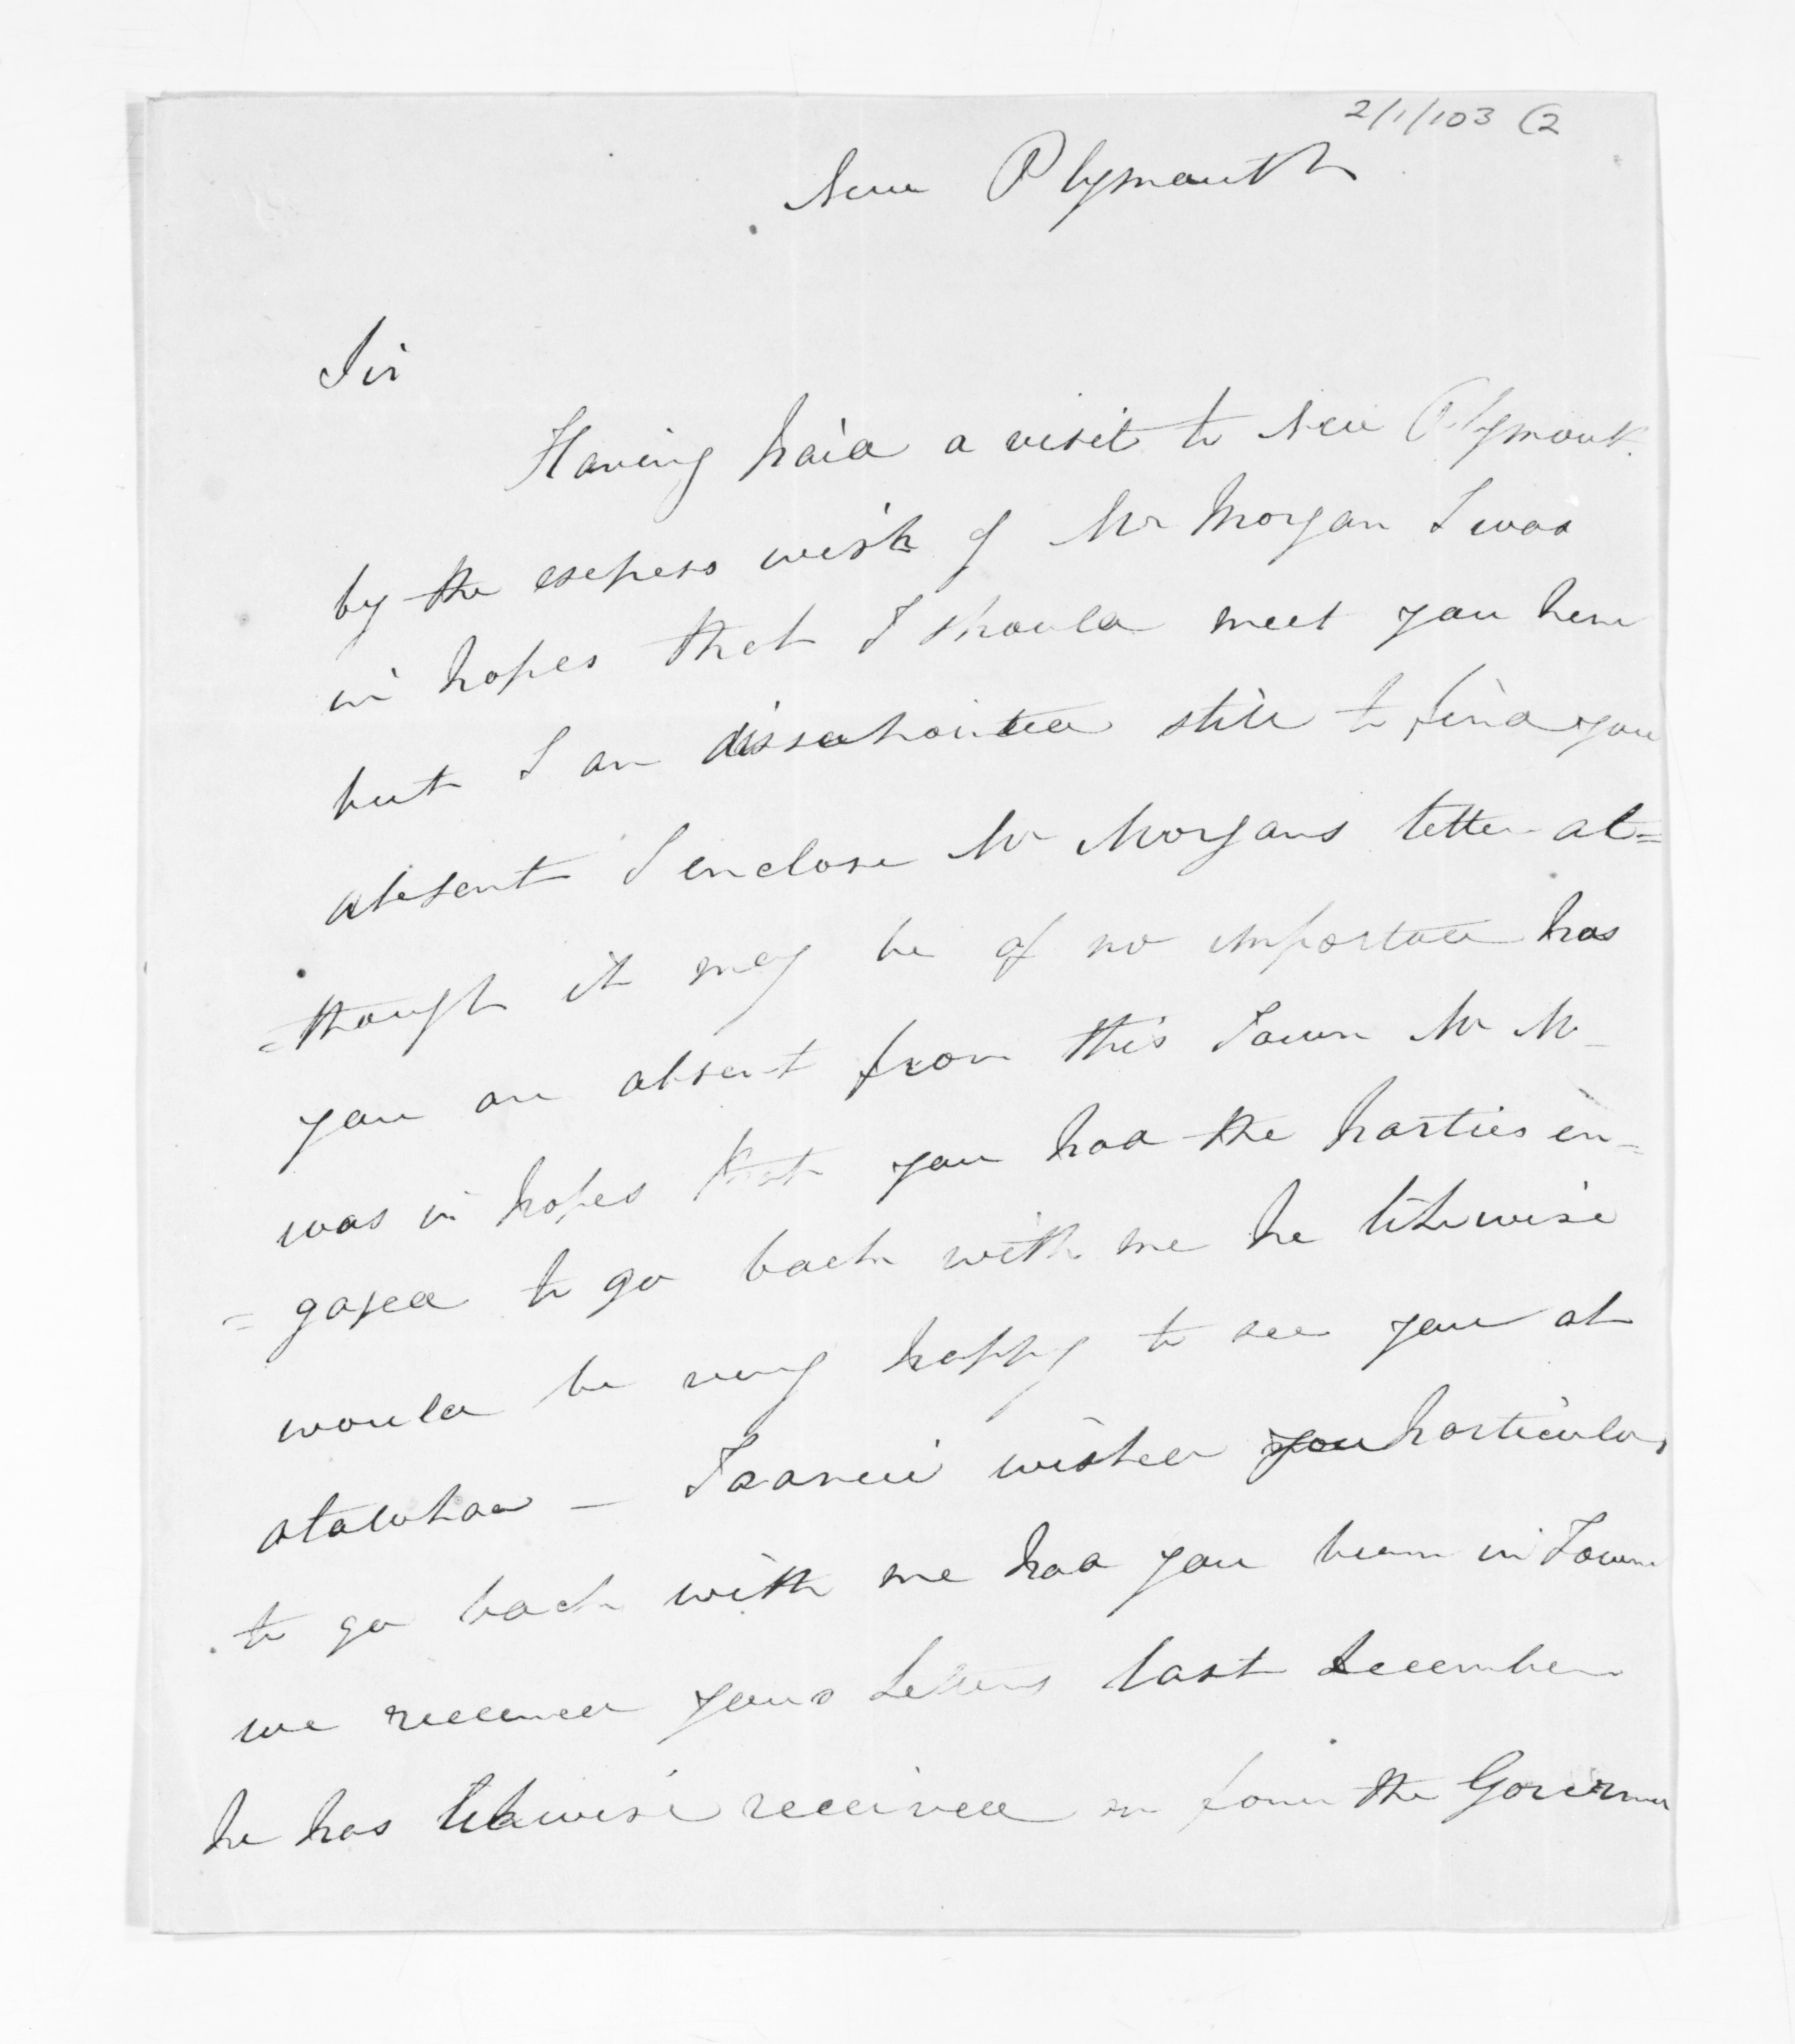 2/1/103 (2
New Plymouth
Sir
Having paid a visit to New Plymouth
by the express wish of Mr Morgan I was
in hopes that I should meet you here
but I am dissapointed still to find you
absent I enclose Mr Morgans letter al=
=though it may be of no importace has
you are absent from this Town Mr M
was in hopes that you had the parties en=
=gaged to go back with me he likewise
would be very happy to see you at
otawhao - wished you particular
to go back with me had you been in Town
we received yours Letters last December
he has likewise received on from the Governer